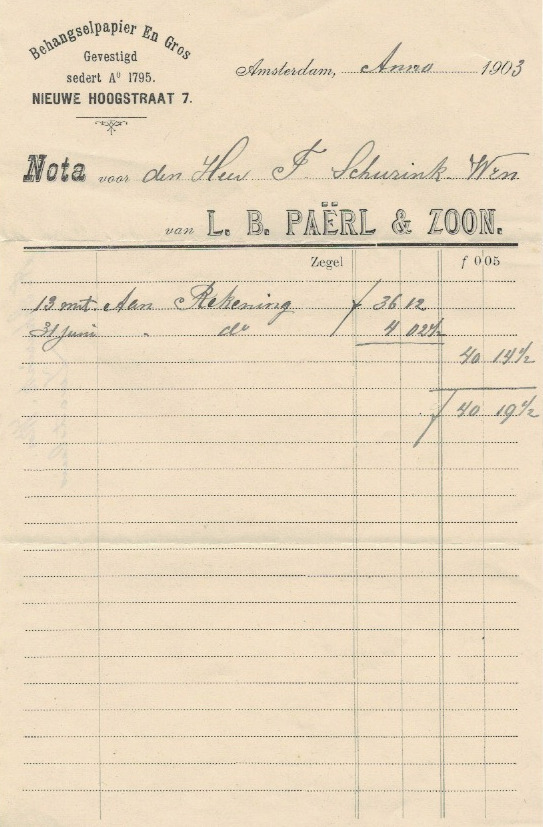 Behangselpapier En Gros
Gevestigd
sedert A° 1795.
NIEUWE HOOGSTRAAT 7.
Amsterdam, Anno 1903
Nota voor den Heer F. Schurink Wzn
van L. B. PAËRL & ZOON.
Zegel f 0 05
13 mrt. Aan Rekening f 36 12
31 Juni " do 4 02½
40 14½
f 40 19½